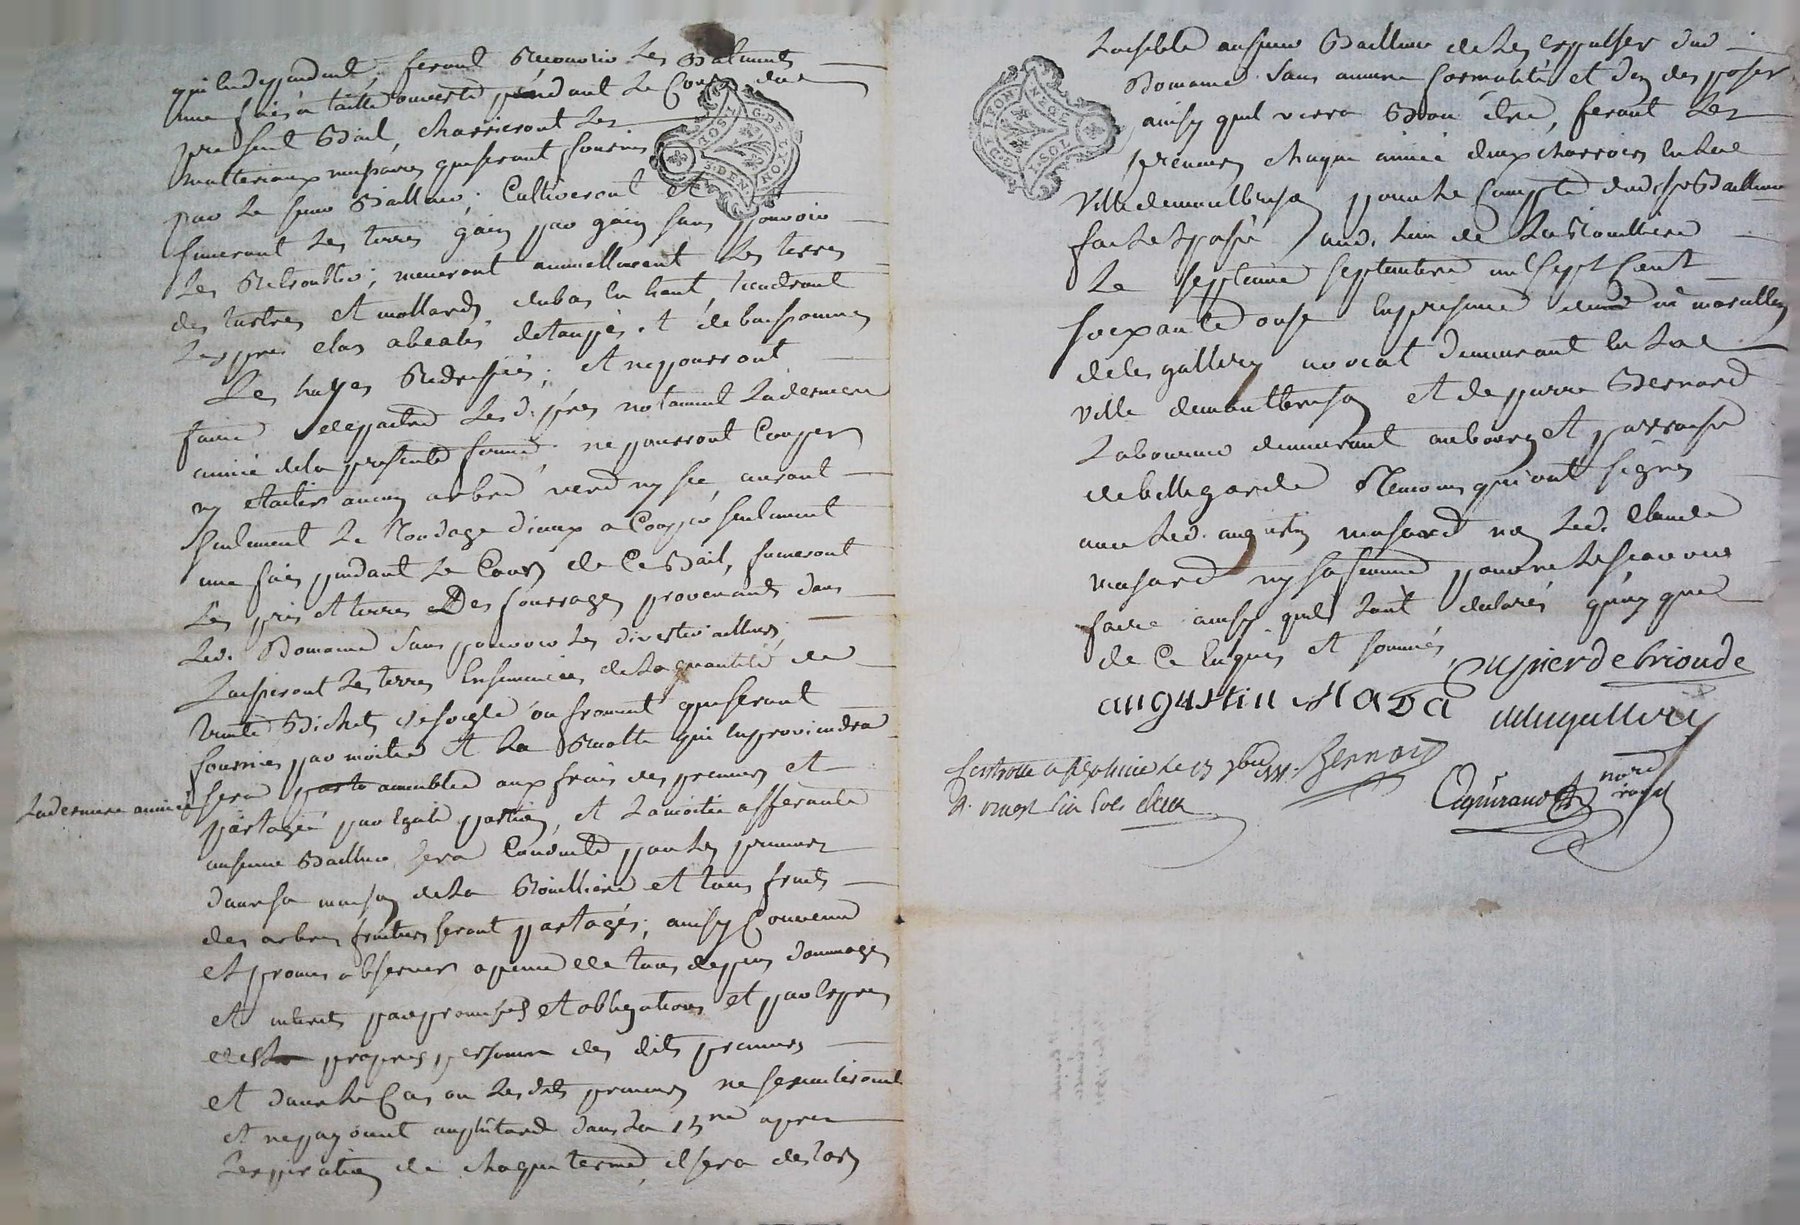 qui en dependent, feront recouvrir les Batiments
une fois a taille ouverte pendant le Cours du
present Bail, charrieront les
materiaux necessaires que seront fournis
par le sieur Bailleur; Cultiveront et
fumeront les terres gain par gain sans pouvoir
les Retroubler; meneront annuellement les terres
des tertres et mollards dubas en haut, tiendront
les prés clos abealés detaupés, et de buissonnes
Les hayes Redressées; et ne pourront
faire depaitre les d. prés notament la derniere
année de la presente ferme; ne pourront Couper
ny etester aucun arbre verd ny sec, auront
seulement le tondage d'iceux a Couper seulement
une fois pendant le Cours de Ce Bail, fumeront
les prés et terres Des fourrages provenants dans
led. Domaine sans pouvoir les divertir ailleurs;
Laisseront les terres Ensemencées de la quantité de
trente Bichets de soigle ou froment que seront
fournies par moitié et la Recolte qui en proviendra
La derniere année
sera ameublée aux frais des preneurs et
partagée par Egale portion, et La moitié afferante
au sieur Bailleur sera Conduite par les preneurs
dans sa maison de La Rouilliere et tous fruits
des arbres fruitiers seront partagés; ainsy Convenu
et promis observer a peine de tous depens dommages
et interets par promesses et obligations et par Expres
des propres personnes des dits preneurs
et dans le Cas ou les dits preneurs ne
et ne payeront au plutard dans la 15ne apres
L'expiration de chaque terme, il sera des lors
Loisible au sieur Bailleur de les expulser dud.
Domaine sans aucune formalité et d'en disposer
ainsy quil verra Bon être, feront les
preneurs chaque année deux charrois en la
Ville de montbrison pour le Compte dud. sr Bailleur
fait et passé aud. lieu de La Rouilliere
Le septieme septembre mil sept Cent
soixante onze En presence de me marcellin
delesgallery avocat demeurant en la
ville de montbrison et de pierre Bernard
Laboureur demeurant au bourg et parroisse
de bellegarde temoins qui ont signés
avec led. augustin masard non led. Claude
masard ny sa femme pour ne le scavoir
faire ainsy quils l'ont declarés quoy que
de Ce Enquis et sommés
Puynier de brioude
augustin MaSa
delesgallery
Bernard